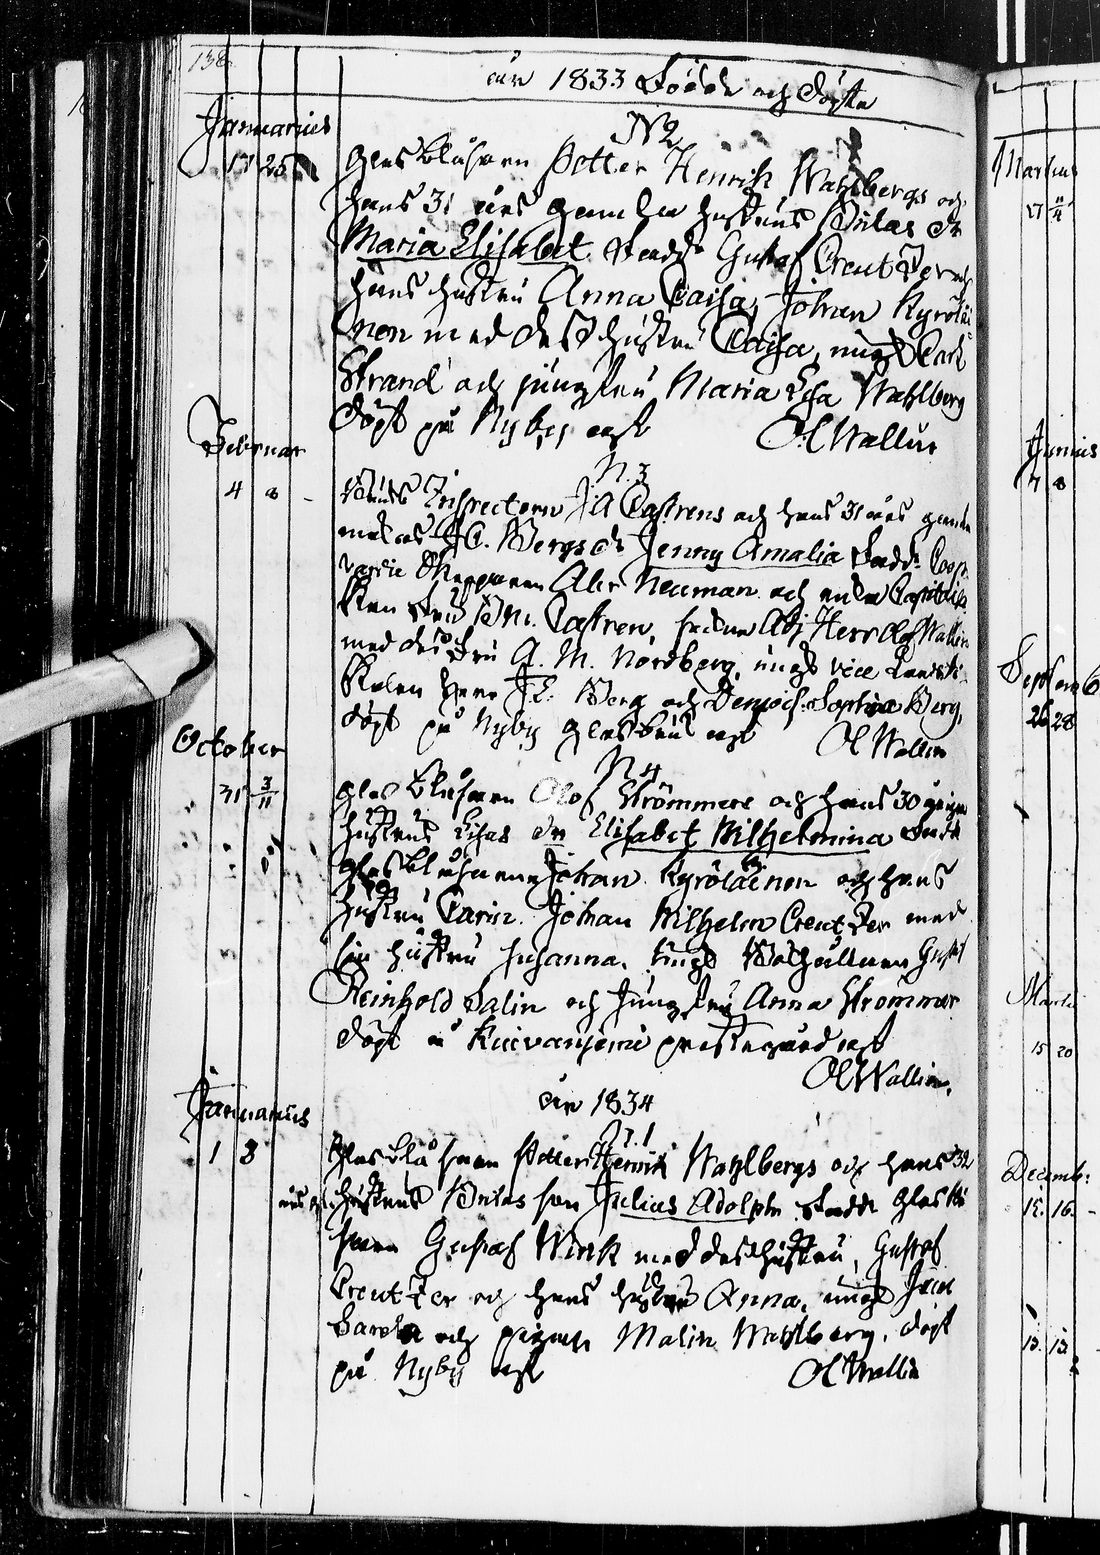 138
år 1833 Födde och döpte
Januarius
N 2
17 25 Glasblåsaren Petter Henrik Wahlbergs och
hans 31 års gamla hustrus Britas dr
Maria Elisabet. Faddr Gustaf Creutzer och
hans hustru Anna Caisa, Johan Kyröläi
nen med dess hustru Caisa, ungk Carl
Strand och jungfru Maria Lisa Wahlberg
döpt på Nyby af
Ol Wallin
Februar
N. 3
4 8 Bruks Inspectoren J A Castrens och hans 31 års gamla
makas C. Bergs dr Jenny Amalia Faddr Coop
vardie Skepparen Alex Neuman och enke Capitals
Fru M. Castren, sedan Adj Herr Olof Wallin
med dess Fru A. M. Nordberg, ungk vice Lands
Herr J. E. Berg och Demois. Sophia Berg,
döpt på Nyby glasbruk af
Ol Wallin
October
N 4
31 3/11 Glasblåsaren Olof Strömmers och hans 30 åriga
hustrus Lisas dr Elisabet Wilhelmina Faddr
Glasblåsaren Johan Kyröläinen och hans
hustru Carin. Johan Wilhelm Creutzer med
sin hustru Susanna. ungk Gustaf
Reinhold Salin och Jungfru Anna Strömmer
döpt i Kuivaniemi prestegård af
Ol Wallin.
år 1834
Januarius
N. 1
1 3 Glasblåsaren Petter Henrik Wahlbergs och hans 32
års gl hustrus Britas son Julius Adolph Faddr Glasblå
saren Gustaf Wink med dess hustru, Gustaf
Creutzer och hans hustru Anna, ungk
Sarela och pigan Malin Wahlberg. döpt
på Nyby af
Ol Wallin
Martius
27 11/4
Junius
7 8
Septemb
26 28
Martii
15 20
Decemb:
15. 16.
13. 13.